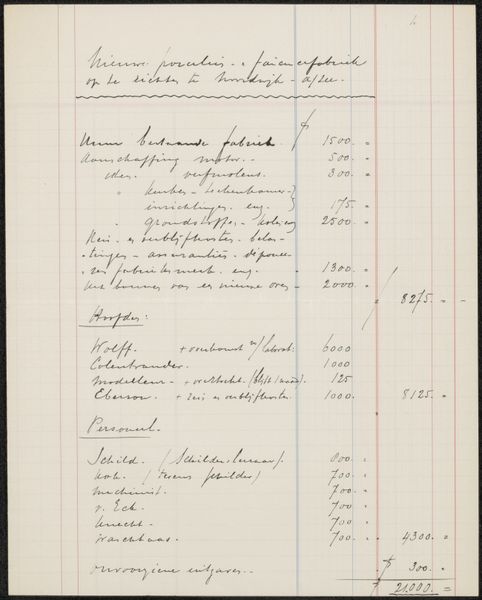 Nieuwe porcelein- & faiencefabriek
op te richten te Noordwijk - a/zee.
Huur bestaande fabriek. f 1500. "
Aanschaffing motor. - 500. "
idem. verfmolens. 300. "
" kamer-
inrichtingen. eng. } 175. "
" grondstoffen - 2500 "
Reis- en verblijfkosten - belas-
-tingen - assurantiën -
fabrieksmerk. eng. " 1300. "
Het bouwen van een nieuwe oven - 2000. "
f 8275. " -
Hoofden:
Wolff. + 6000
Colenbrander. 1000
Modelleur - + 125
Eberson. + reis en verblijfkosten. 1000. 8125. "
Personeel.
Schild. (Schilder, leeraar). 800. "
(tevens schilder) 700. "
Machinist. 700. "
v. Eck. 700 "
Knecht. - 700 "
700. " 4300. "
Onvoorziene uitgaven. - f 300. "
f 21.000. =